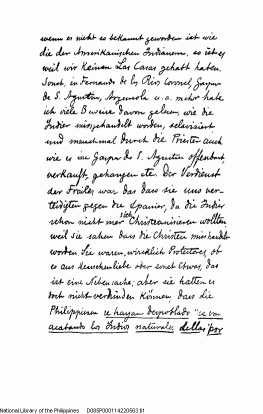 wenn es nicht so bekannt geworden ist wie
die der Amerikanischen Indianern, so ist es
weil wir keinen Las Casas gehabt haben.
Sonst, in Fernando de los Rios Coronel, Gaspar
de S. Agustin, Argensola u. a. mehr habe
ich viele Beweise davon gelesen, wie die
Indier misshandelt worden,
und manchmal durch die Priester auch
wie es in Gaspar de S. Agustin offenbart,
verkauft, gehangen etc. Der Verdienst
der Frailes war das dass sie uns ver-
teidigten gegen die Spanier, da die Indier
schon nicht mehr sich Christianisieren wollten
weil sie sahen dass die Christen misshandelt
worden. Sie waren wirklich Protectores, ob
es aus Menschenliebe oder sonst Etwas, das
ist eine Nebensache; aber sie hatten es
doch nicht verhindern können, dass die
Philippinen se hayan despoblado "se van
acabando los Indios naturales dellas por
National Library of the Philippines D00SP000114220563.tif